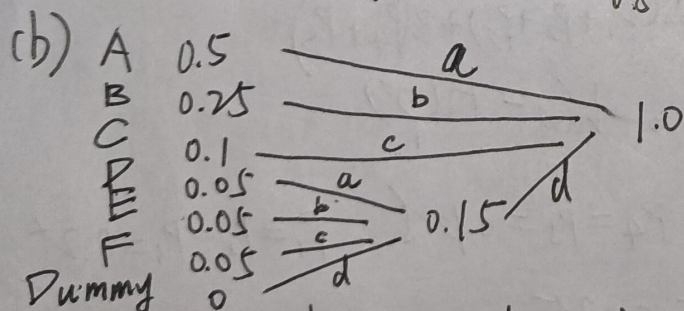 (b) A 0.5 a
B 0.25 b 1.0
C 0.1 c
D 0.05 a d
E 0.05 b 0.15
F 0.05 c
Dummy 0 d